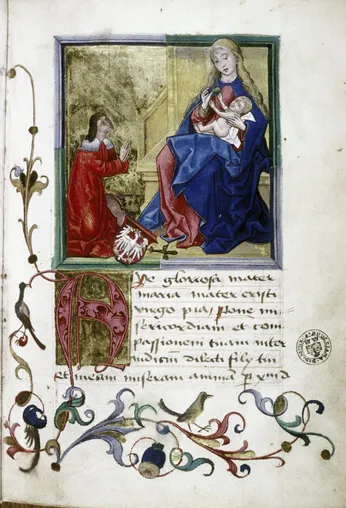 Ave gloriosa mater
maria mater cristi
virgo pia pone mi
sericordiam et com
passionem tuam inter
iudicium dilecti filij tui
et meam miseram animam